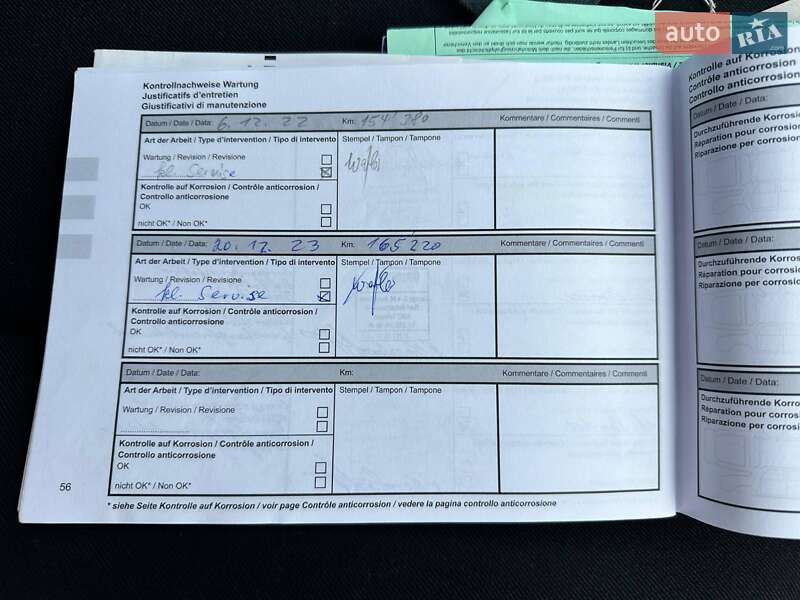 auto RIA
Kontrollnachweise Wartung
Justificatifs d'entretien
Giustificativi di manutenzione
Datum / Date / Data: 6. 12. 22 Km: 154'380 Kommentare / Commentaires / Commenti
Art der Arbeit / Type d'intervention / Tipo di intervento Stempel / Tampon / Tampone
Wartung / Revision / Revisione
kl. Service
Kontrolle auf Korrosion / Contrôle anticorrosion /
Controllo anticorrosione
OK
nicht OK* / Non OK*
Datum / Date / Data: 20. 12. 23 Km: 165'220 Kommentare / Commentaires / Commenti
Art der Arbeit / Type d'intervention / Tipo di intervento Stempel / Tampon / Tampone
Wartung / Revision / Revisione
kl. Servise
Kontrolle auf Korrosion / Contrôle anticorrosion /
Controllo anticorrosione
OK
nicht OK* / Non OK*
Datum / Date / Data: Km: Kommentare / Commentaires / Commenti
Art der Arbeit / Type d'intervention / Tipo di intervento Stempel / Tampon / Tampone
Wartung / Revision / Revisione
Kontrolle auf Korrosion / Contrôle anticorrosion /
Controllo anticorrosione
OK
nicht OK* / Non OK*
56
* siehe Seite Kontrolle auf Korrosion / voir page Contrôle anticorrosion / vedere la pagina controllo anticorrosione
Kontrolle auf Korrosion
Contrôle anticorrosion
Controllo anticorrosion
Datum / Date / Data:
Durchzuführende Korro
Réparation pour corrosion
Riparazione per corrosion
Datum / Date / Data:
Durchzuführende Korro
Réparation pour corrosi
Riparazione per corros
Datum / Date / Data:
Durchzuführende Korro
Réparation pour corro
Riparazione per corro